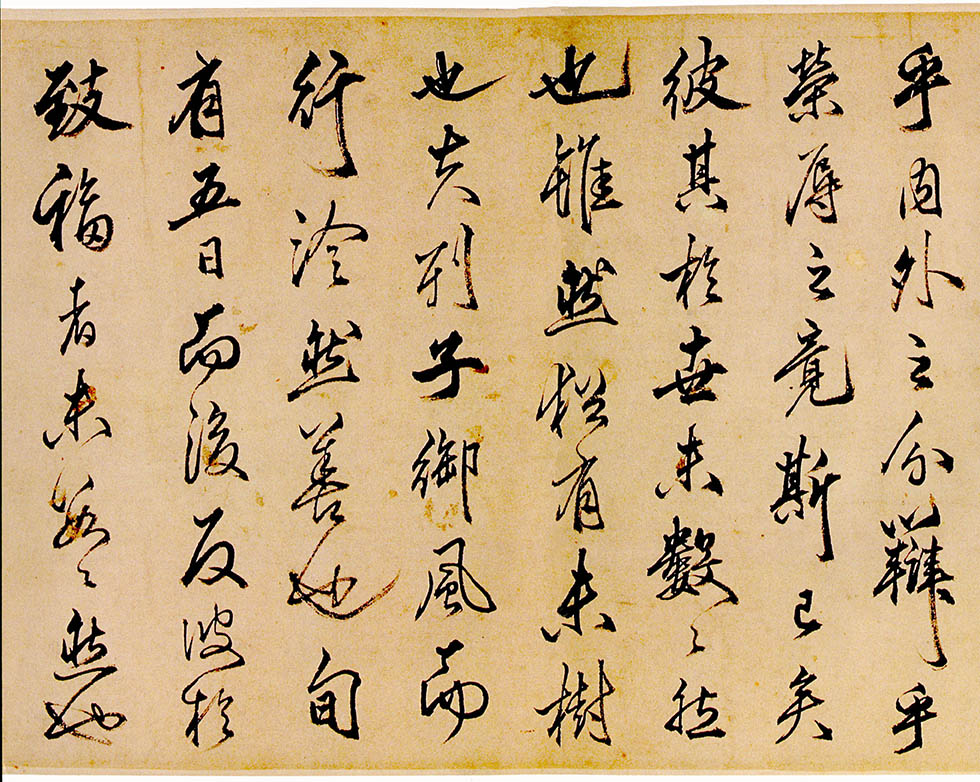 乎内外之分辯乎
榮辱之竟斯已矣
彼其於世未數〻然
也雖然猶有未樹
也夫列子御風而
行泠然善也旬
有五日而後反彼於
致福者未數〻然也